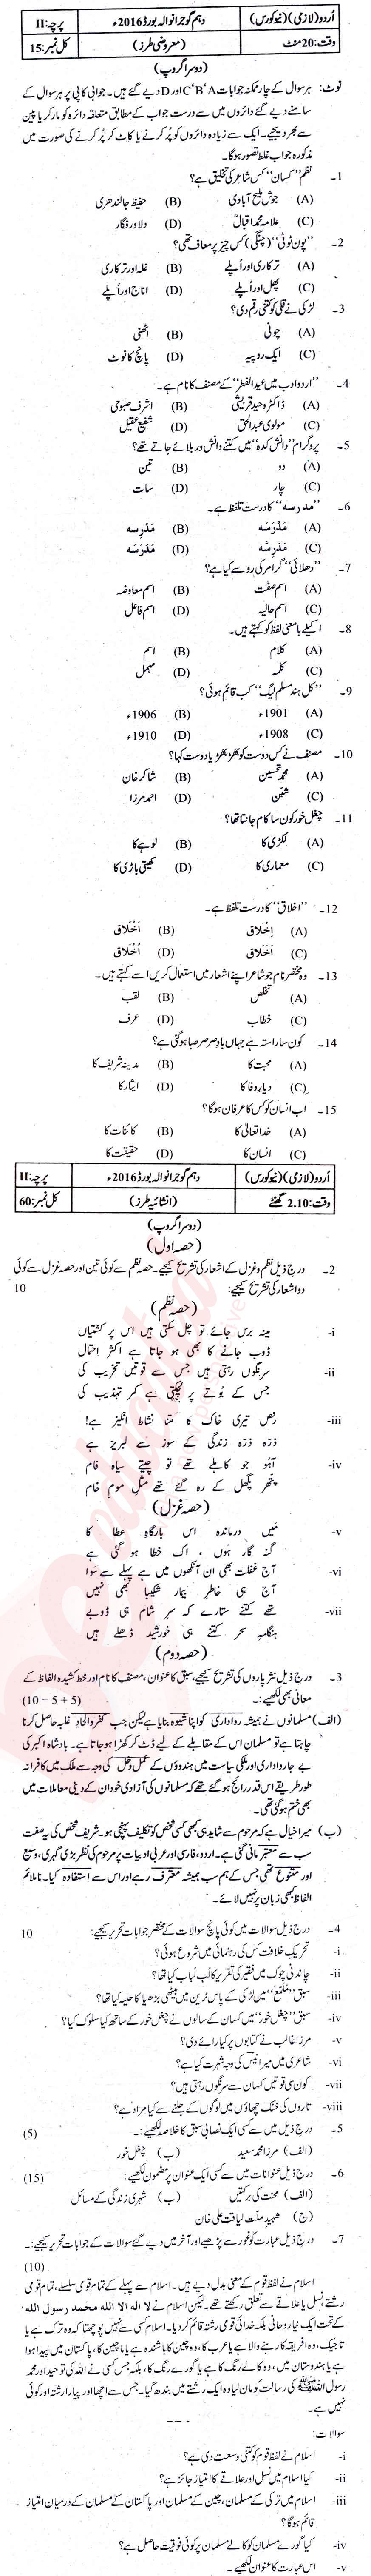 اُردو (لازمی) (نیوکورس) دہم گوجرانوالہ بورڈ 2016ء پرچہ: II
وقت: 20 منٹ (معروضی طرز) کل نمبر: 15
(دوسرا گروپ)
نوٹ: ہر سوال کے چار ممکنہ جوابات A‘ B‘ C اور D دیے گئے ہیں۔ جوابی کاپی پر ہر سوال کے
سامنے دیے گئے دائروں میں سے درست جواب کے مطابق متعلقہ دائرہ کو مارکر یا پین
سے بھر دیجیے۔ ایک سے زیادہ دائروں کو پُر کرنے یا کاٹ کر پُر کرنے کی صورت میں
مذکورہ جواب غلط تصور ہوگا۔
1۔ نظم ’’کسان‘‘ کس شاعر کی تخلیق ہے؟
(A) جوش ملیح آبادی (B) حفیظ جالندھری
(C) علامہ محمد اقبالؒ (D) دلاور فگار
2۔ ’’پون ٹوٹی‘‘ (چنگی) کس چیز پر معاف تھی؟
(A) ترکاری اور اُپلے (B) غلہ اور ترکاری
(C) پھل اور اُپلے (D) اناج اور اُپلے
3۔ لڑکی نے قلی کو کتنی رقم دی؟
(A) چونی (B) اٹھنی
(C) ایک روپیہ (D) پانچ کا نوٹ
4۔ ’’اردو ادب میں عیدالفطر‘‘ کے مصنف کا نام ہے۔
(A) ڈاکٹر وحید قریشی (B) اشرف صبوحی
(C) مولوی عبدالحق (D) شفیع عقیل
5۔ پروگرام ’’دانش کدہ‘‘ میں کتنے دانش ور بلائے جاتے تھے؟
(A) دو (B) تین
(C) چار (D) سات
6۔ ’’مدرسہ‘‘ کا درست تلفظ ہے۔
(A) مَدْرَسَہ (B) مَدْرِسہ
(C) مَدرسُہ (D) مَدَرَسَہ
7۔ ’’دھلائی‘‘ گرامر کی رو سے کیا ہے؟
(A) اسم صفت (B) اسم معاوضہ
(C) اسم حالیہ (D) اسم فاعل
8۔ اکیلے بامعنی لفظ کو کہتے ہیں۔
(A) کلام (B) اسم
(C) کلمہ (D) مہمل
9۔ ’’کل ہند مسلم لیگ‘‘ کب قائم ہوئی؟
(A) 1901ء (B) 1906ء
(C) 1908ء (D) 1910ء
10۔ مصنف نے کس دوست کو بھڑبھڑیا دوست کہا؟
(A) محمد تحسین (B) شاکر خان
(C) شبّن (D) احمد مرزا
11۔ چغل خور کون سا کام جانتا تھا؟
(A) لکڑی کا (B) لوہے کا
(C) معماری کا (D) کھیتی باڑی کا
12۔ ’’اخلاق‘‘ کا درست تلفظ ہے۔
(A) اِخْلَاق (B) اَخْلَاق
(C) اَخَلَاق (D) اُخْلَاق
13۔ وہ مختصر نام جو شاعر اپنے اشعار میں استعمال کریں اسے کہتے ہیں۔
(A) تخلص (B) لقب
(C) خطاب (D) عرف
14۔ کون سا راستہ ہے جہاں بادِ صرصر صبا ہو گئی ہے؟
(A) محبت کا (B) مدینہ شریف کا
(C) دیارِ وفا کا (D) ایثار کا
15۔ اب انسان کو کس کا عرفان ہوگا؟
(A) خدا تعالیٰ کا (B) کائنات کا
(C) انسان کا (D) حقیقت کا
اُردو (لازمی) (نیوکورس) دہم گوجرانوالہ بورڈ 2016ء پرچہ: II
وقت: 2.10 گھنٹے (انشائیہ طرز) کل نمبر: 60
(دوسرا گروپ)
(حصہ اول)
2۔ درج ذیل نظم و غزل کے اشعار کی تشریح کیجیے۔ حصہ نظم سے کوئی تین اور حصہ غزل سے کوئی
دو اشعار کی تشریح کیجیے: 10
(حصہ نظم)
-i مینہ برس جائے تو چل سکتی ہیں اس پر کشتیاں
ڈوب جانے کا بھی ہو جاتا ہے اکثر احتمال
-ii سرنگوں رہتی ہیں جس سے قوتیں تخریب کی
جس کے بُوتے پر لچکتی ہے کمر تہذیب کی
-iii رقص تیری خاک کا کتنا نشاط انگیز ہے!
ذرّہ ذرّہ زندگی کے سوز سے لبریز ہے
-iv آہو جو کاہلے تھے تو چیتے سیاہ فام
پتھر پگھل کے رہ گئے تھے مثلِ موم خام
(حصہ غزل)
-v میں درماندہ اس بارگاہِ عطا کا
گنہ گار ہوں، اک خطا ہو گئی ہے
-vi آج غفلت بھی ان آنکھوں میں ہے پہلے سے سوا
آج ہی خاطرِ بیمار شکیبا بھی نہیں
-vii تھے کتنے ستارے کہ سرِ شام ہی ڈوبے
ہنگامِ سحر کتنے ہی خورشید ڈھلے ہیں
(حصہ دوم)
3۔ درج ذیل نثر پاروں کی تشریح کیجیے، سبق کا عنوان، مصنف کا نام اور خط کشیدہ الفاظ کے
معانی بھی لکھیے:۔ (5 + 5 = 10)
(الف) مسلمانوں نے ہمیشہ رواداری کو اپنا شیوہ بنایا ہے لیکن جب کفر و الحاد غلبہ حاصل کرنا
چاہتا ہے تو مسلمان اس کے مقابلے کے لیے ڈٹ کر کھڑا ہو جاتا ہے۔ بادشاہ اکبر کی
بے جا رواداری اور ملکی سیاست میں ہندوؤں کے عمل دخل کی وجہ سے ملک میں کافرانہ
طور طریقے اس قدر رائج ہو گئے تھے کہ مسلمانوں کی آزادی خود ان کے دینی معاملات میں
بھی ختم ہو گئی تھی۔
(ب) میرا خیال ہے کہ مرحوم سے شاید ہی کبھی کسی شخص کو تکلیف پہنچی ہو۔ شریف شخص کی یہ صفت
سب سے معتبر مانی گئی ہے۔ اردو، فارسی اور عربی ادبیات پر مرحوم کی نظر بڑی گہری، وسیع
اور متنوع تھی جس کے ہم سب ہمیشہ معترف رہے اور اس سے استفادہ کیا۔ ناملائم
الفاظ کبھی زبان پر نہیں لائے۔
4۔ درج ذیل سوالات میں کوئی پانچ سوالات کے مختصر جوابات تحریر کیجیے: 10
-i تحریکِ خلافت کس کی رہنمائی میں شروع ہوئی؟
-ii چاندنی چوک میں فقیر کی تقریر کا لُب لُباب کیا تھا؟
-iii سبق ’’مُلمّع‘‘ میں لڑکی کے پاس ٹرین میں بیٹھی بڑھیا کا حلیہ کیا تھا؟
-iv سبق ’’چغل خور‘‘ میں کسان کے سالوں نے چغل خور کے ساتھ کیا سلوک کیا؟
-v مرزا غالب نے کتابوں پر کیا رائے دی؟
-vi شاعری میں میر انیس کی وجہ شہرت کیا ہے؟
-vii کون سی قوتیں کسان سے سرنگوں رہتی ہیں؟
-viii تاروں کی خنک چھاؤں میں لوگوں کے جلنے سے کیا مراد ہے؟
5۔ درج ذیل میں سے کسی ایک نصابی سبق کا خلاصہ لکھیے:۔ (5)
(الف) مرزا محمد سعید (ب) چغل خور
6۔ درج ذیل عنوانات میں سے کسی ایک عنوان پر مضمون لکھیے: (15)
(الف) محنت کی برکتیں (ب) شہری زندگی کے مسائل
(ج) شہیدِ ملت لیاقت علی خان
7۔ درج ذیل عبارت کو غور سے پڑھیے اور آخر میں دیے گئے سوالات کے جوابات تحریر کیجیے:۔
(10)
اسلام نے لفظ قوم کے معنی بدل دیے ہیں۔ اسلام سے پہلے کے تمام قومی سلسلے، تمام قومی
رشتے نسل یا علاقے سے تعلق رکھتے تھے۔ لیکن اسلام نے لا الہ الا اللہ محمد رسول اللہ
کے تحت ایک نیا روحانی بلکہ خدائی قومی رشتہ قائم کر دیا۔ اسلام کسی سے نہیں پوچھتا کہ وہ ترک ہے یا
تاجیک، وہ افریقہ کا رہنے والا ہے یا عرب کا، وہ چین کا باشندہ ہے یا ماچین کا، پاکستان میں پیدا ہوا
ہے یا ہندوستان میں، وہ کالے رنگ کا ہے یا گورے رنگ کا، بلکہ جس کسی نے اللہ کی توحید اور محمد
رسول اللہ ﷺ کی رسالت کو مان لیا وہ ایک رشتے میں بندھ گیا۔ جس سے اچھا اور پیارا رشتہ اور کوئی
نہیں ہے۔
سوالات:
-i اسلام نے لفظ قوم کو کتنی وسعت دی ہے؟
-ii کیا اسلام میں نسل اور علاقے کا امتیاز جائز ہے؟
-iii اسلام میں ترکی کے مسلمان، چین کے مسلمان اور پاکستان کے مسلمان کے درمیان امتیاز
قائم ہوگا؟
-iv کیا گورے مسلمان کو کالے مسلمان پر کوئی فوقیت حاصل ہے؟
-v اس عبارت کا عنوان لکھیے۔